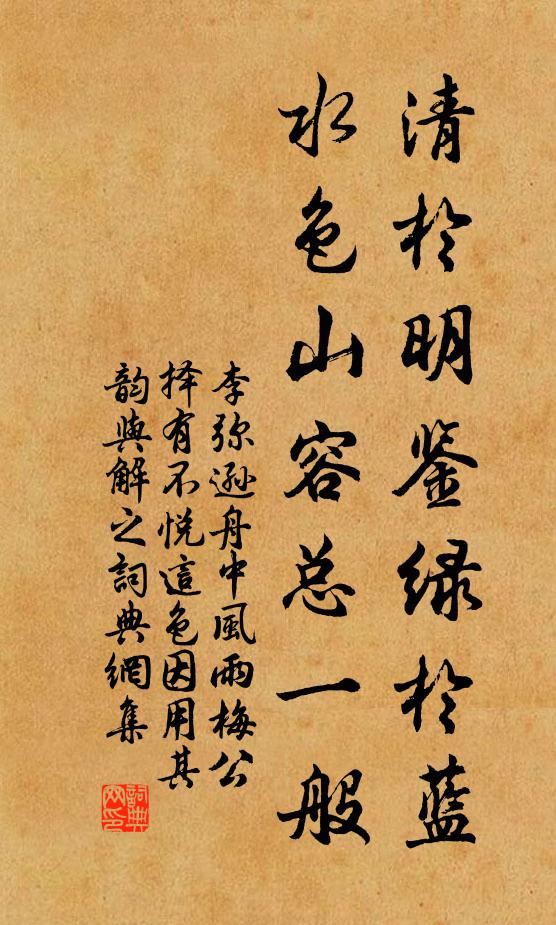 清於明鉴緑於藍
水色山容总一般
李弥遜舟中風雨梅公
择有不悦這色因用其
韵與解之詞典網集
詞典網印